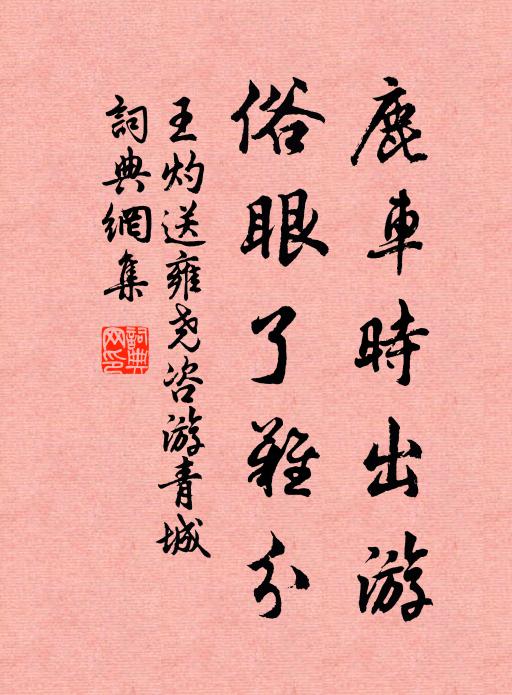 鹿車時出游
俗眼了難分
王灼送雍尧咨游青城
詞典網集
詞典網印